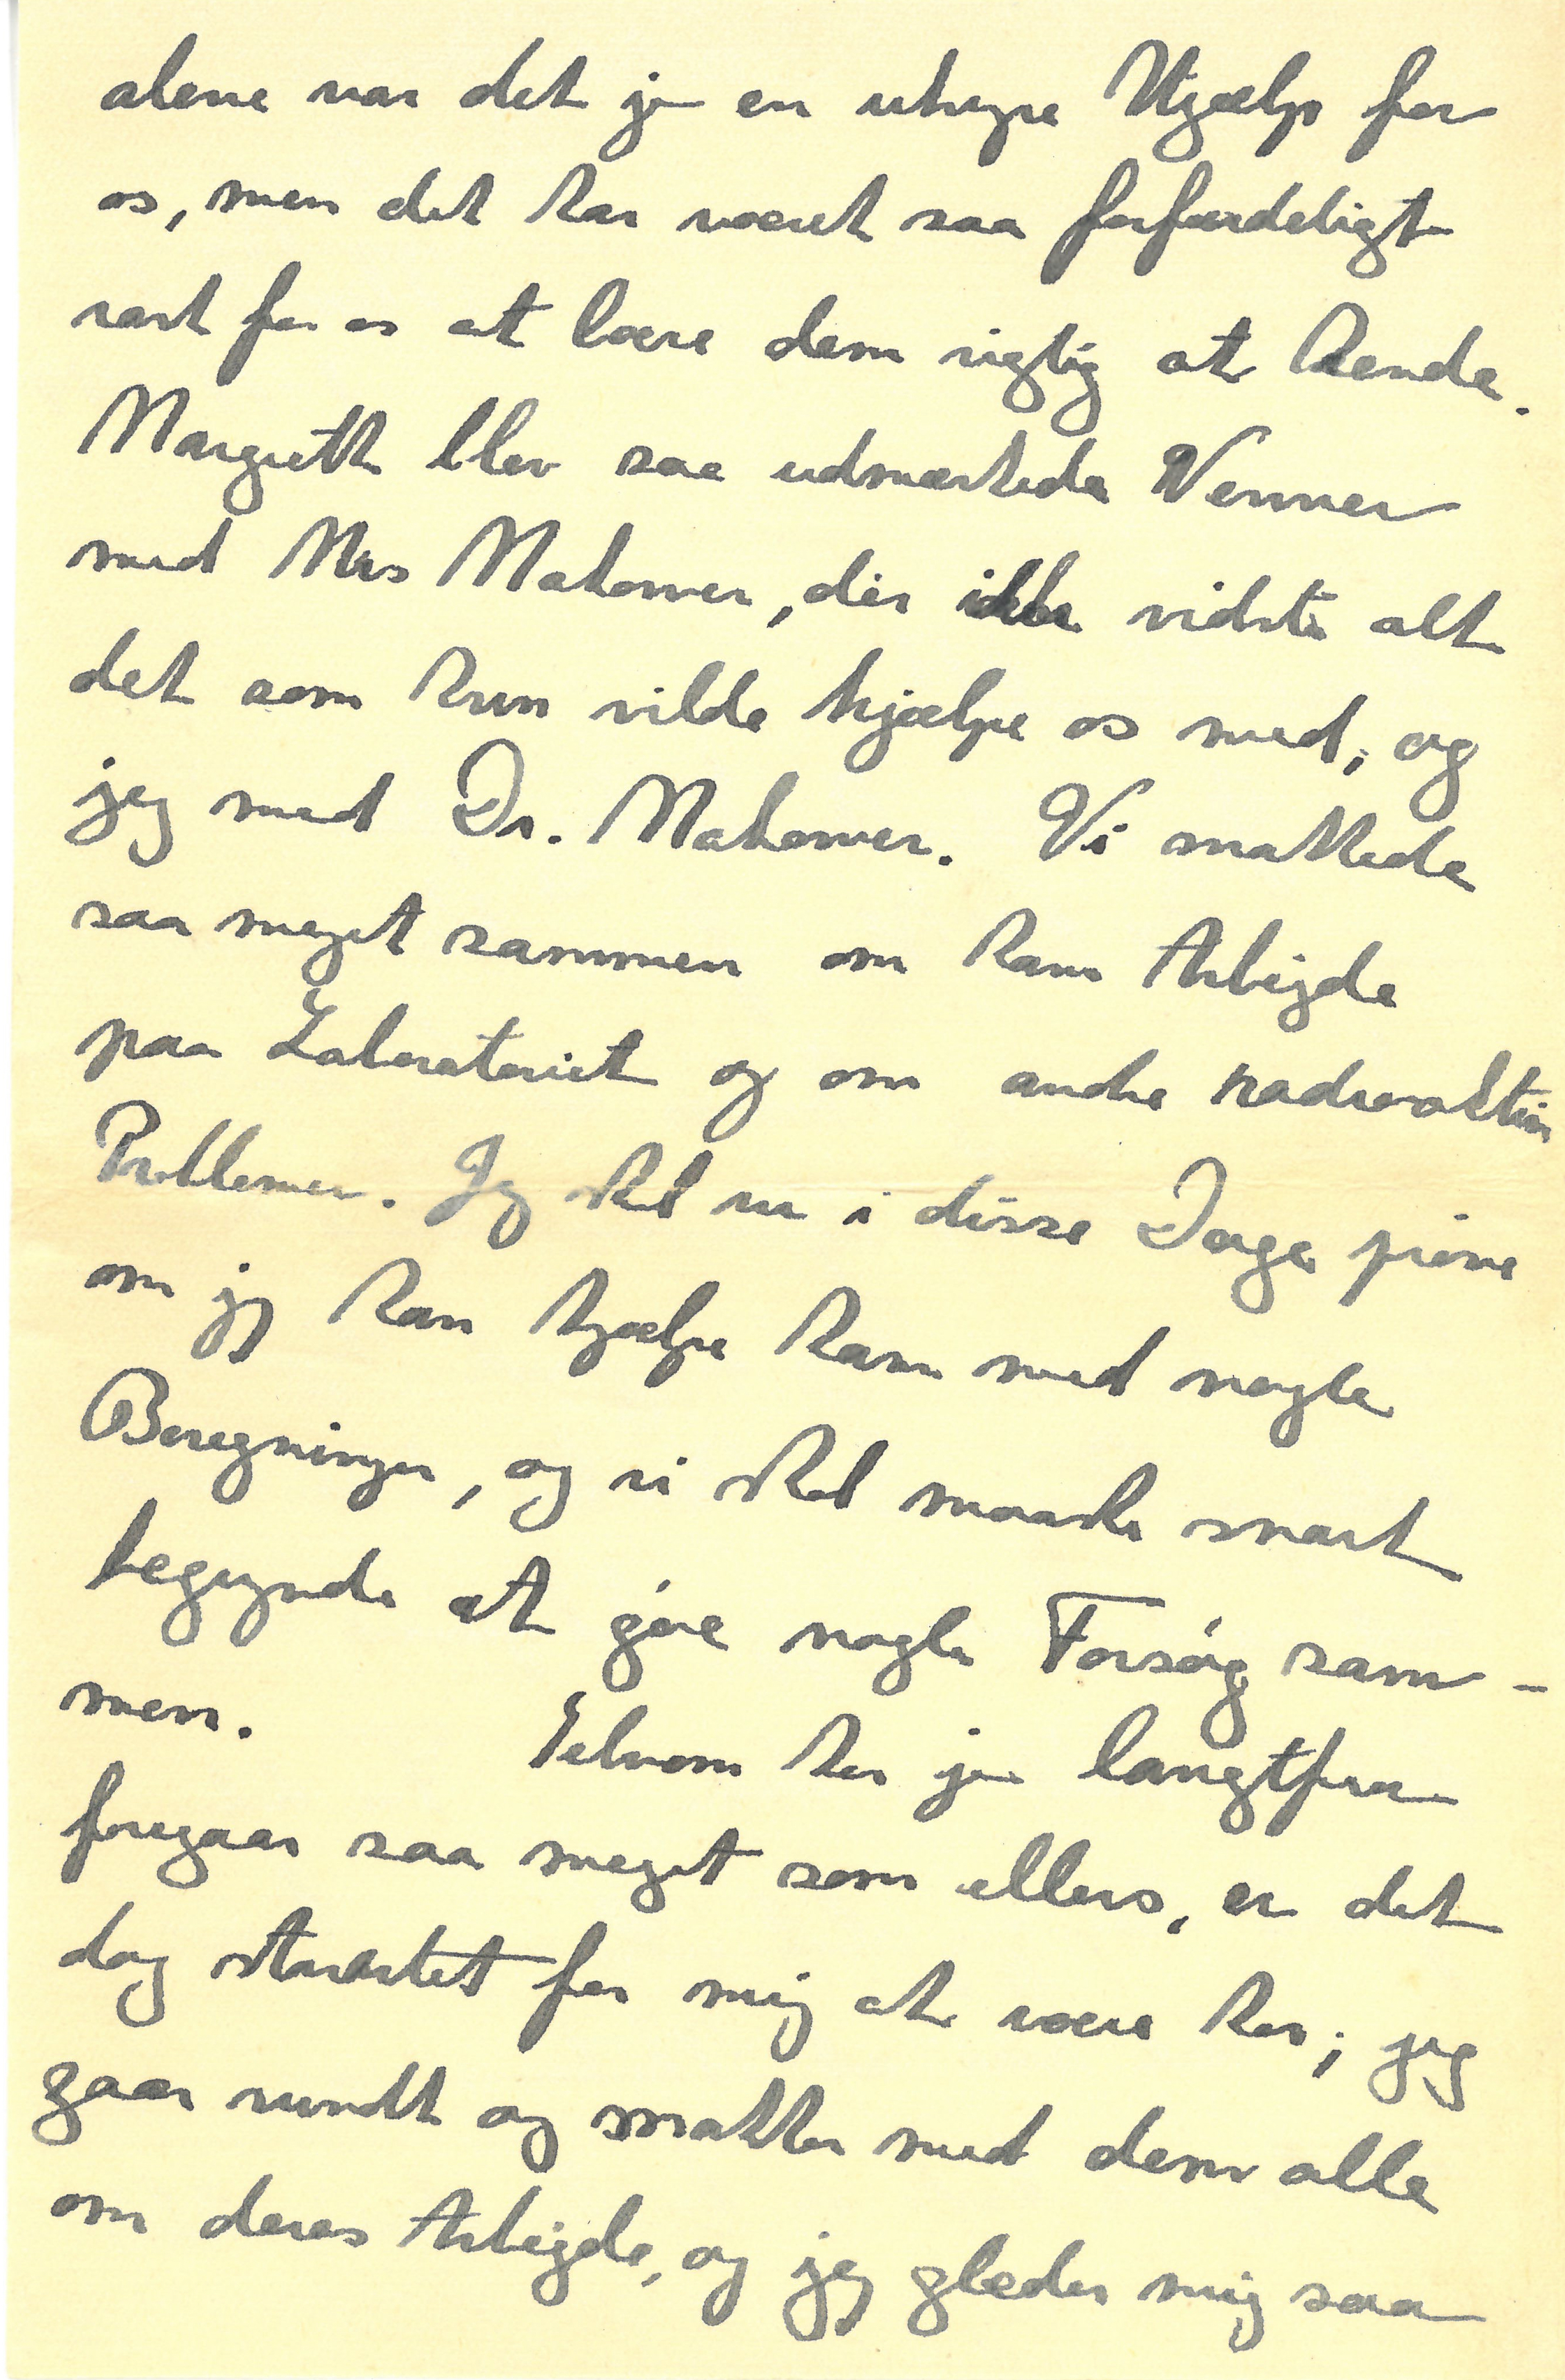 alene var det jo en uhyre Hjælp for
os, men det har været saa forfærdeligt
rart for os at lære dem rigtig at kende.
Margrethe blev saa udmærkede Venner
med Mrs Makower, der ikke vidste alt
det som hun vilde hjælpe os med, og
jeg med Dr. Makower. Vi snakkede
saa meget sammen om hans Arbejde
paa Laboratoriet og om andre radioaktive
Problemer. Jeg skal nu i disse Dage prøve
om jeg kan hjælpe ham med nogle
Beregninger, og vi skal maaske snart
begynde at gøre nogle Forsøg sam-
men. Selvom her jo langtfra
foregaar saa meget som ellers, er det
dog storartet for mig at være her; jeg
gaar rundt og snakker med dem alle
om deres Arbejde, og jeg glæder mig saa